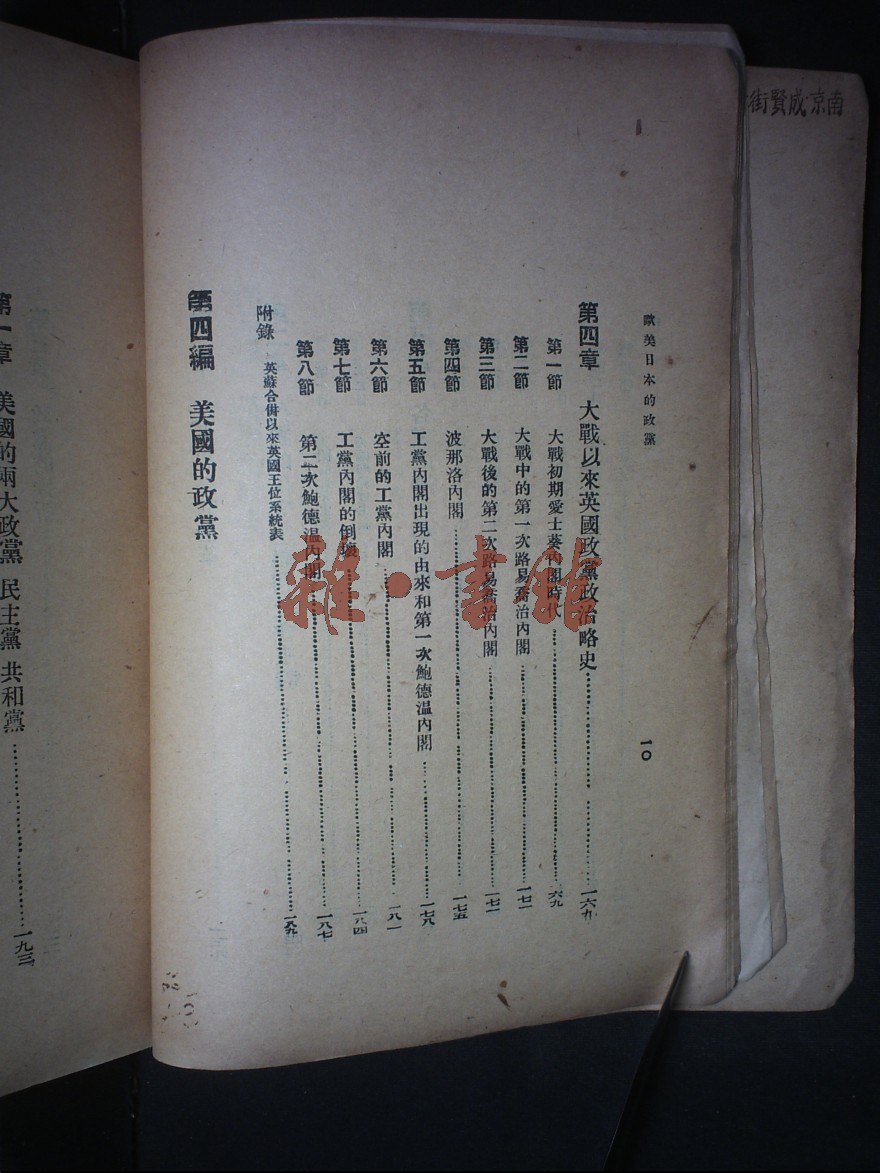 歐美日本的政黨
一〇
第四章 大戰以來英國政黨政治略史……一六九
第一節 大戰初期愛士葵內閣時代……一六九
第二節 大戰中的第一次路易喬治內閣……一七一
第三節 大戰後的第二次路易喬治內閣……一七一
第四節 波那洛內閣……一七五
第五節 工黨內閣出現的由來和第一次鮑德温內閣……一七八
第六節 空前的工黨內閣……一八一
第七節 工黨內閣的倒壞……一八四
第八節 第二次鮑德温內閣……一八七
附錄 英蘇合併以來英國王位系統表……一八九
第四編 美國的政黨
第一章 美國的兩大政黨 民主黨 共和黨……一九三
南京成賢街
雜·書館